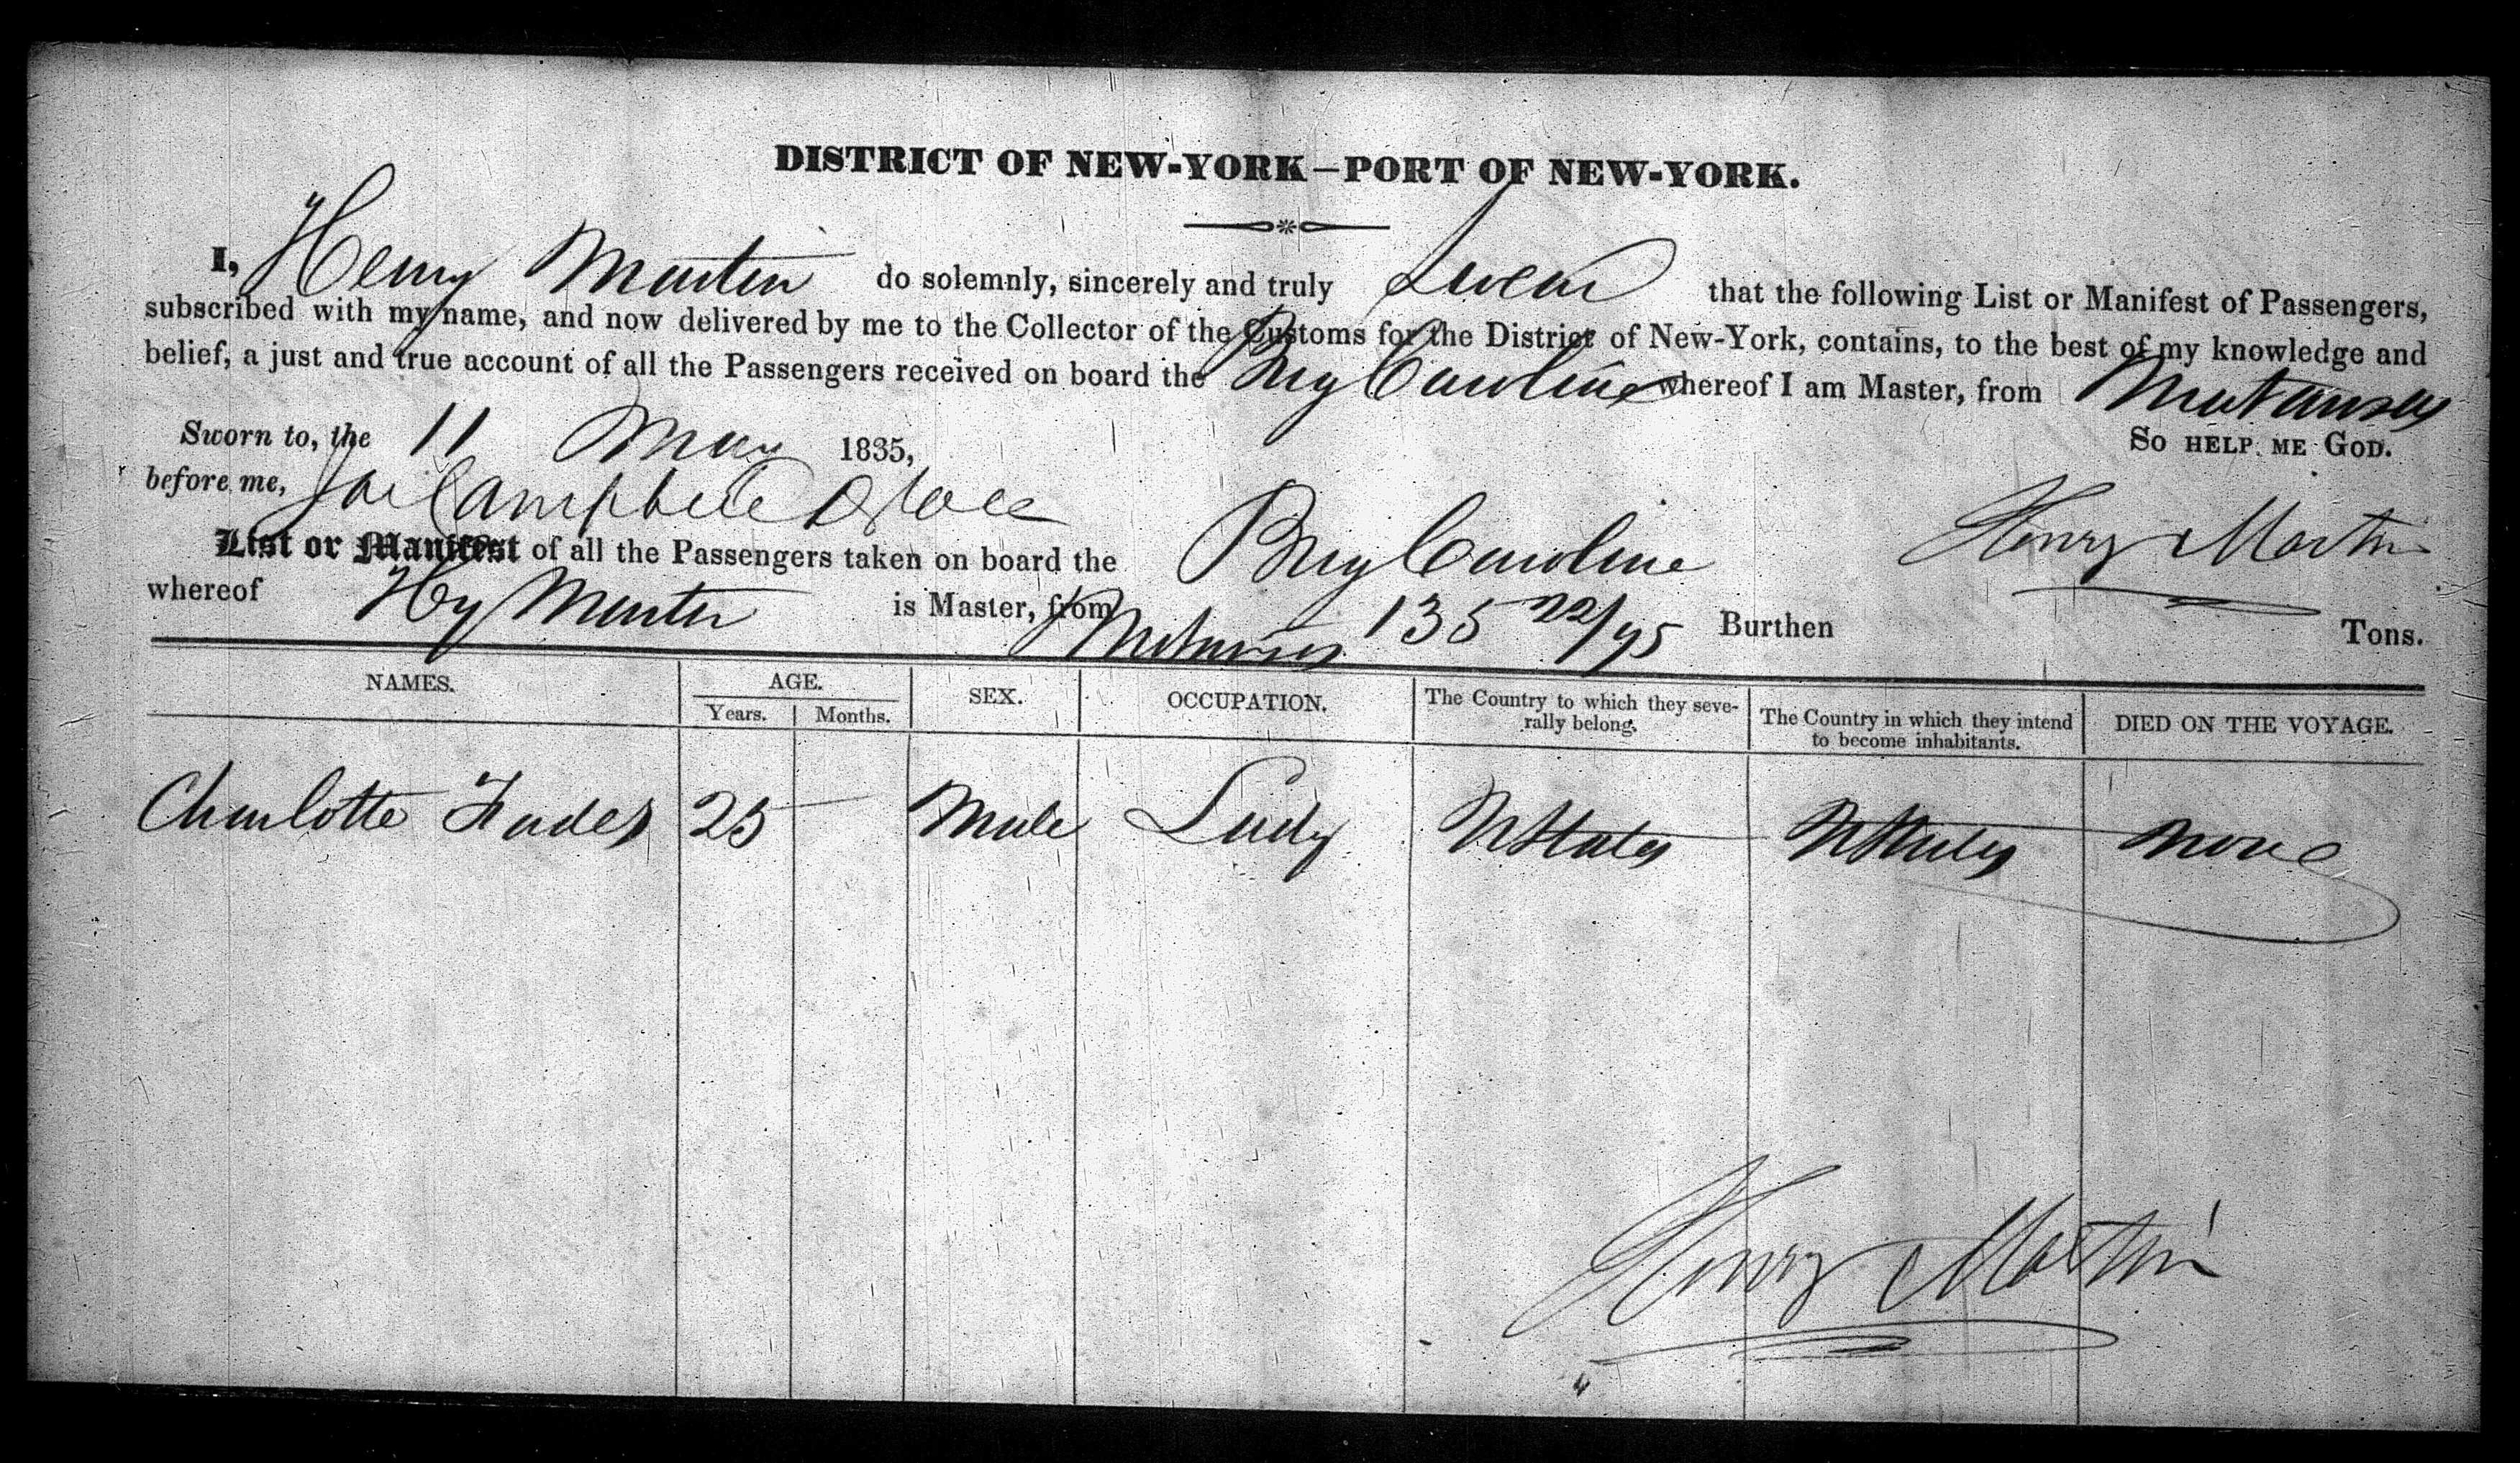 DISTRICT OF NEW-YORK—PORT OF NEW-YORK.
I, Henry Martin do solemnly, sincerely and truly Swear that the following List or Manifest of Passengers,
subscribed with my name, and now delivered by me to the Collector of the Customs for the District of New-York, contains, to the best of my knowledge and
belief, a just and true account of all the Passengers received on board the Brig Caroline whereof I am Master, from Matanzas
Sworn to, the 11 May 1835, So HELP ME GOD.
before me, Campbell
Henry Martin
List or Manifest of all the Passengers taken on board the Brig Caroline
whereof Hy Martin is Master, from Matanzas 135 22/95 Burthen Tons.
NAMES. AGE. SEX. OCCUPATION. The Country to which they seve-
rally belong. The Country in which they intend
to become inhabitants. DIED ON THE VOYAGE.
Years. Months.
Charlotte 25 Male Lady UStates UStates none
Henry Martin